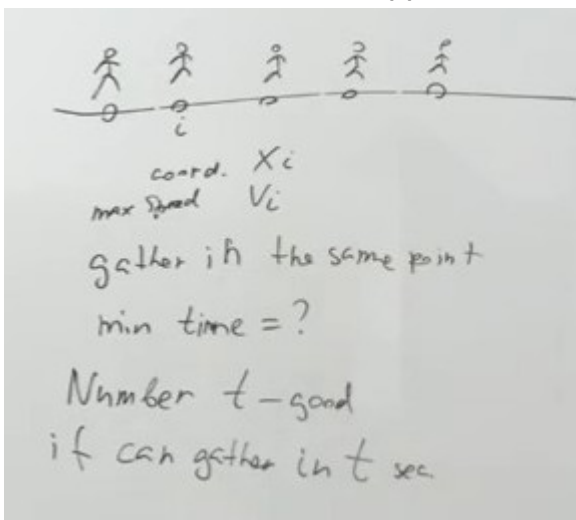 i
coord. Xi
max speed Vi
gather in the same point
min time = ?
Number t - good
if can gather in t sec